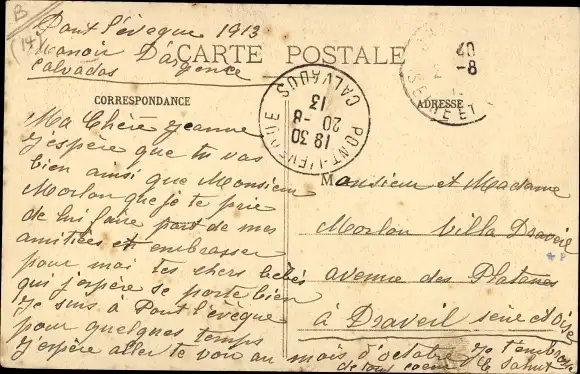 B
(14)
Pont l'évêque 1913
manoir D'argence
Calvados
CARTE POSTALE
CORRESPONDANCE
ADRESSE
PONT-L'EVEQUE
CALVADOS
19 30
20 -8
13
40
2 -8
SEINE ET
Ma Chère Jeanne
j'espère que tu vas
bien ainsi que Monsieur
Morlon que je te prie
de lui faire part de mes
amitiées et embrasser
pour moi tes chers bébés
qui j'espère se porte bien
Je suis à Pont l'évêque
pour quelques temps
j'espère aller te voir au mois d'octobre je t'embrasse
de tout coeur le salut
Monsieur et Madame
Morlon Villa Draveil
avenue des Platanes
à Draveil seine et Oise